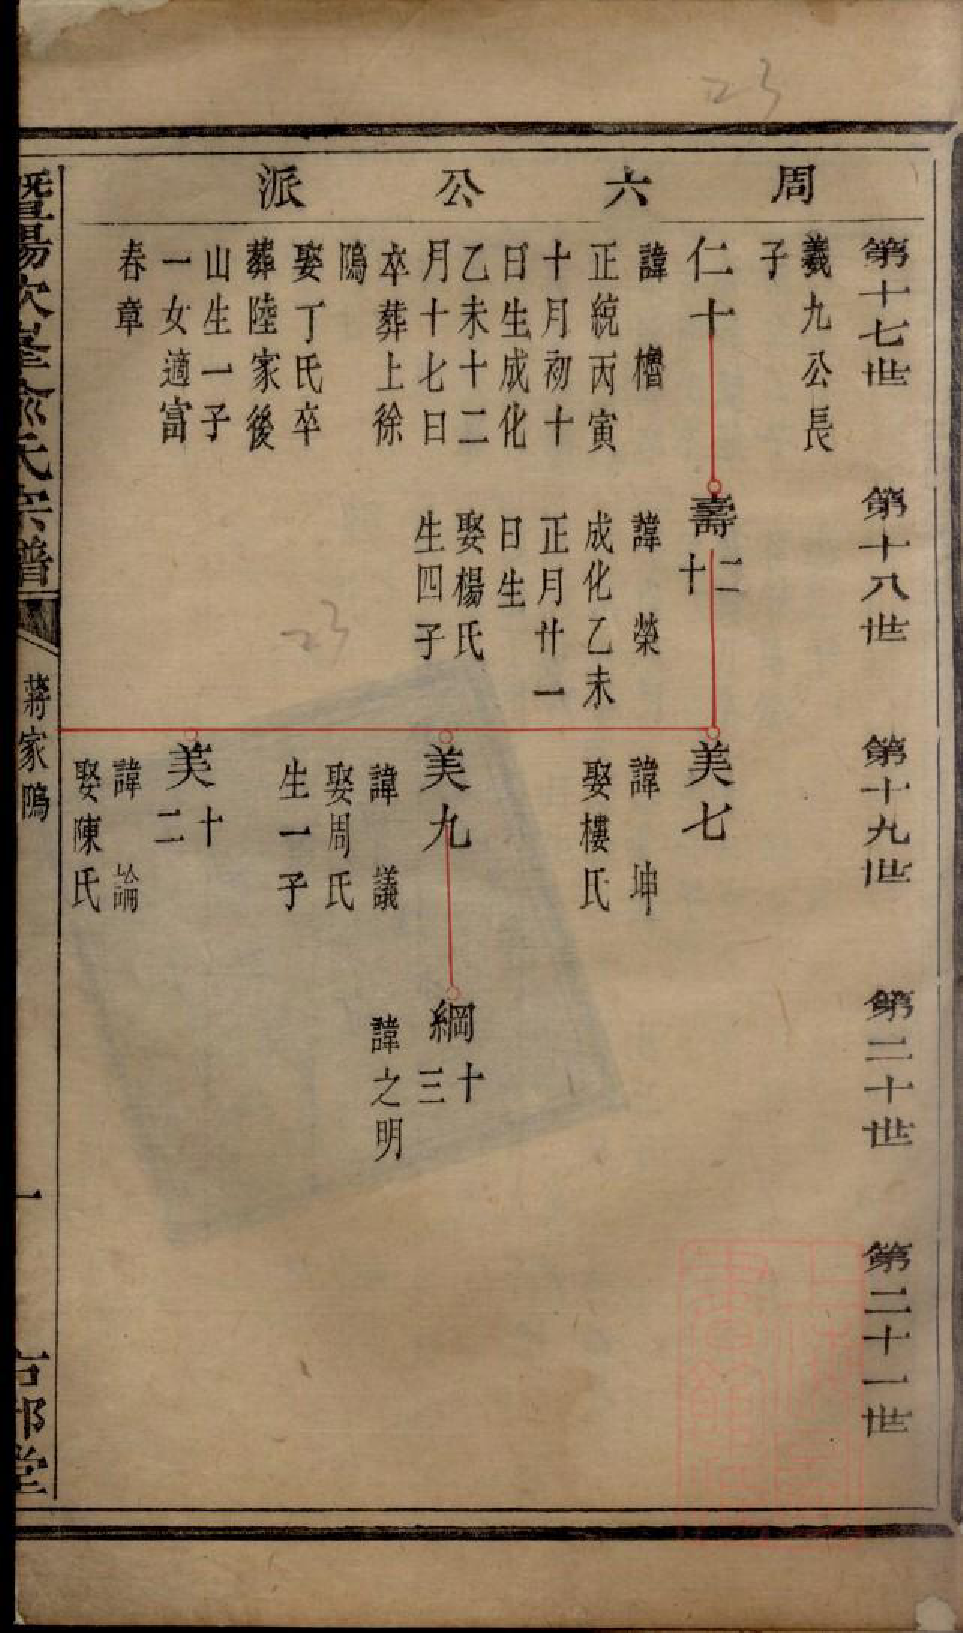 周六公派
第十七世
第十八世
第十九世
第二十世
第二十一世
義九公長
子
仁十
諱櫓
正統丙寅
十月初十
日生成化
乙未十二
月十七日
卒葬上徐
隝
娶丁氏卒
葬陸家後
山生一子
一女適富
春章
壽二十
諱榮
成化乙未
正月廿一
日生
娶楊氏
生四子
美七
諱坤
娶樓氏
美九
諱議
娶周氏
生一子
美十二
諱論
娶陳氏
綱十三
諱之明
蔣家隝
一
23
23